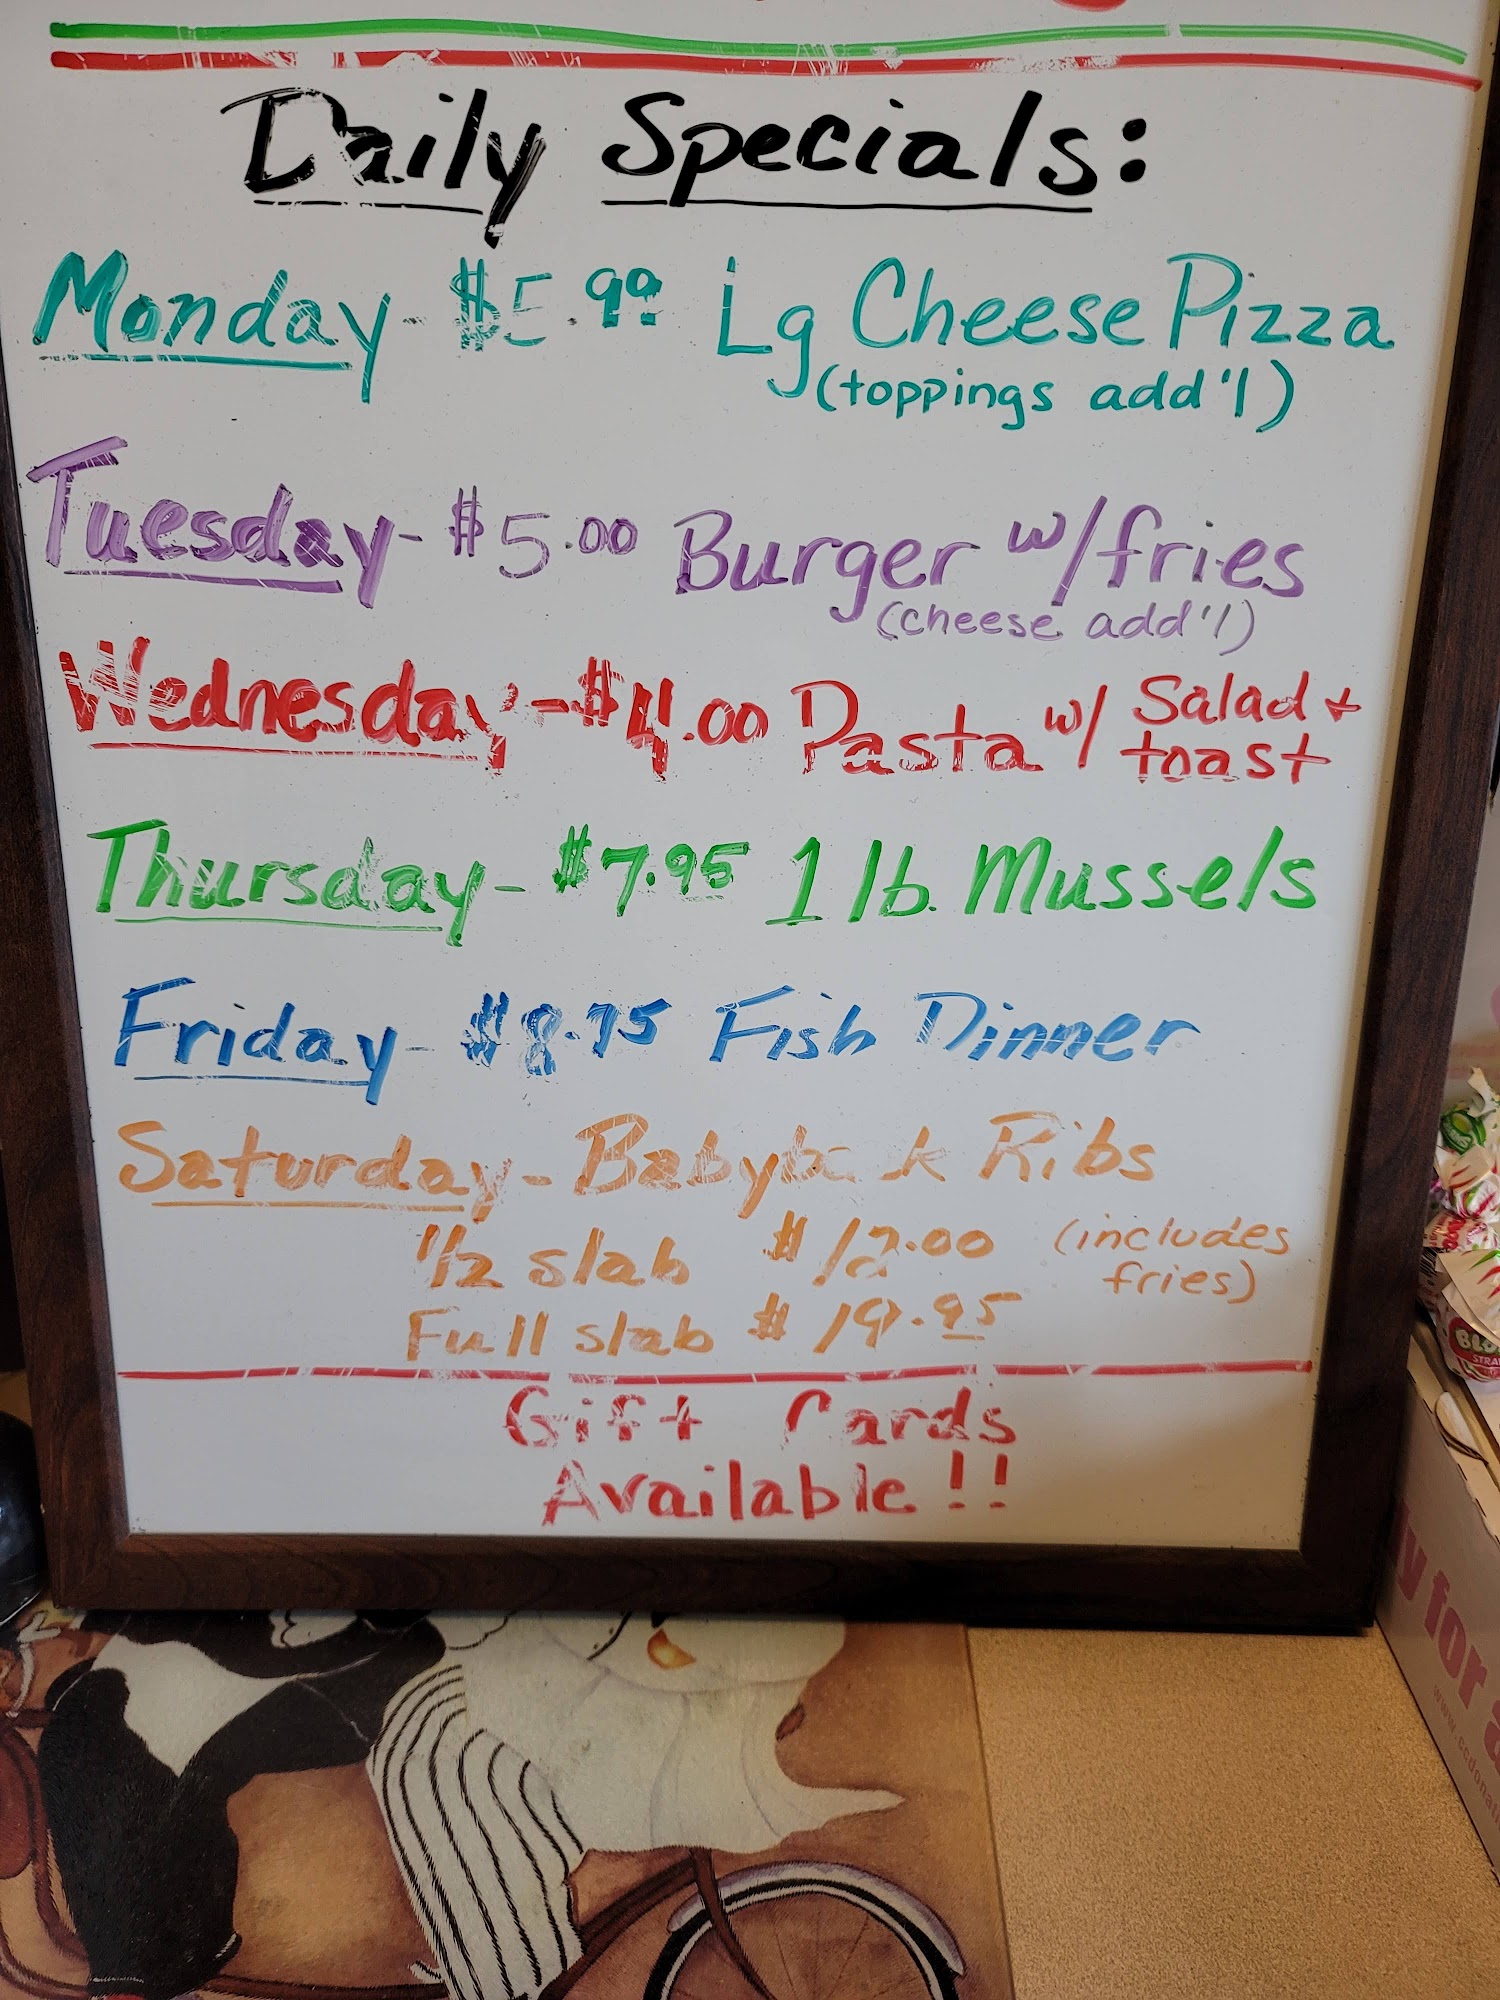 Daily Specials:
Monday - $5.99 Lg Cheese Pizza
(toppings add'l)
Tuesday - $5.00 Burger w/fries
(cheese add'l)
Wednesday - $4.00 Pasta w/ Salad +
toast
Thursday - $7.95 1 lb. Mussels
Friday - $8.75 Fish Dinner
Saturday - Babyback Ribs
1/2 slab $12.00 (includes
fries)
Full slab $19.95
Gift Cards
Available!!
y for